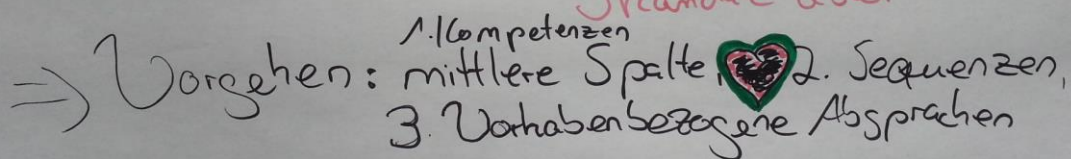 1. Kompetenzen
=> Vorgehen: mittlere Spalte, 2. Sequenzen,
3. Vorhabenbezogene Absprachen